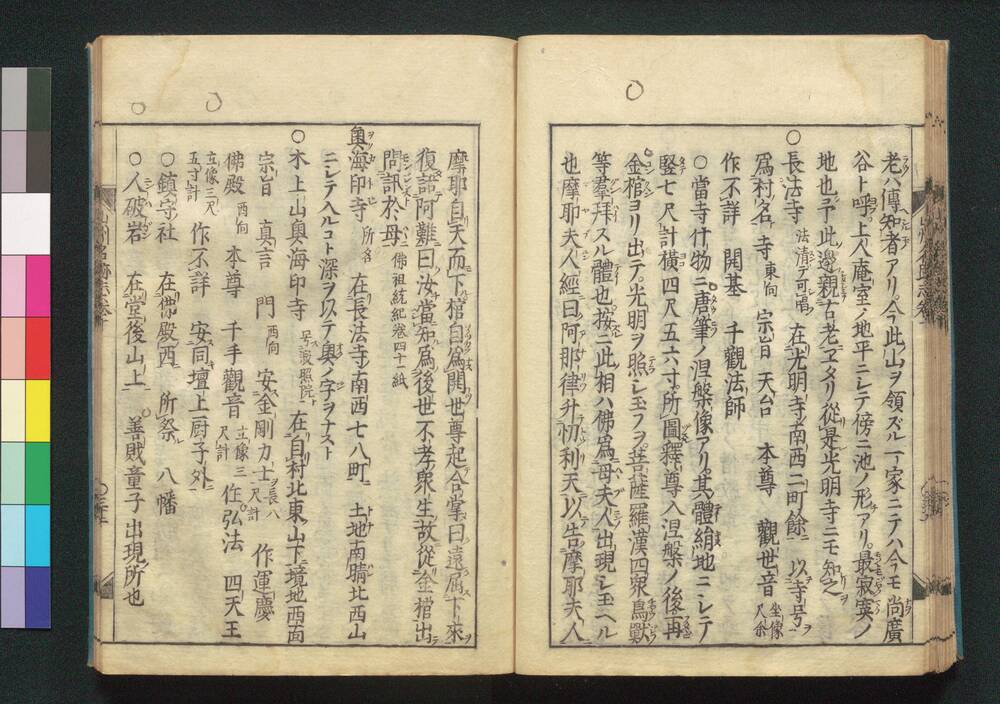 老ハ傳知者アリ今此山ヲ領ズル丁家ニテハ今モ尚廣
谷ト呼上人庵室ノ地平ニシテ傍ニ池ノ形アリ最寂寞ノ
地也予此邉親古老ヱタリ從是光明寺ニモ知之
○長法寺 法清デ可唱 在光明寺南西二町餘 以寺号
爲村名 寺 東向 宗旨 天台 本尊 觀世音 坐像尺余
作不詳 開基 千觀法師
○當寺什物ニ唐筆ノ涅槃像アリ其體絹地ニシテ
竪七尺計横四尺五六寸所圖釋尊入涅槃ノ後再
金棺ヨリ出テ光明ヲ照シ玉フヲ菩薩羅漢四衆鳥獸
等羣拜スル體也按ニ此相ハ佛爲母夫人出現シ玉ヘル
也摩耶夫人經曰阿那律升忉利天以告摩耶夫人
摩耶自天而下棺自爲開世尊起合掌曰遠屈下來
復語阿難曰汝當知爲後世不孝衆生故從金棺出
問訊於母 佛祖統紀卷四十一紙
奥海印寺 所名 在長法寺南西七八町 土地南晴北西山
ニシテ入ルコト深ヲ以テ奥ノ字ヲナスト
○木上山奥海印寺 号寂照院 在自村北東山下境地西面
宗旨 真言 門 西向 安金剛力士 長八尺計 作運慶
佛殿 西向 本尊 千手觀音 立像三尺計 作弘法 四天王
立像三尺五寸計 作不詳 安同壇上厨子外
○鎮守社 在佛殿西 所祭 八幡
○人破岩 在堂後山上 善賊童子出現所也